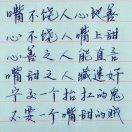 嘴不饶人心地善
心不饶人嘴上甜
心善之人能直言
嘴甜之人藏迷奸
宁交一个抬杠的鬼
不要一个嘴甜的贼